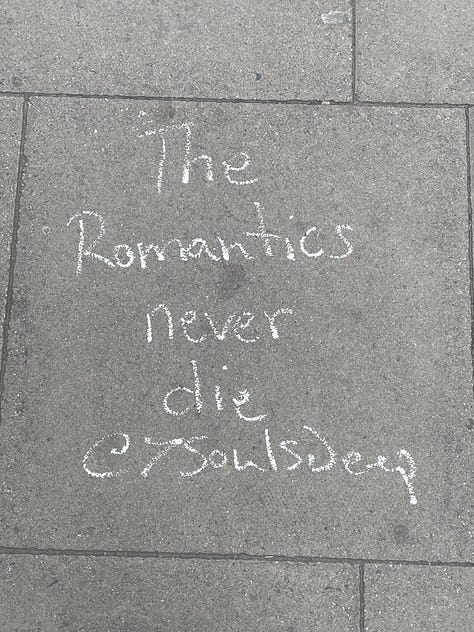 The
Romantics
never
die
@7SoulsDeep